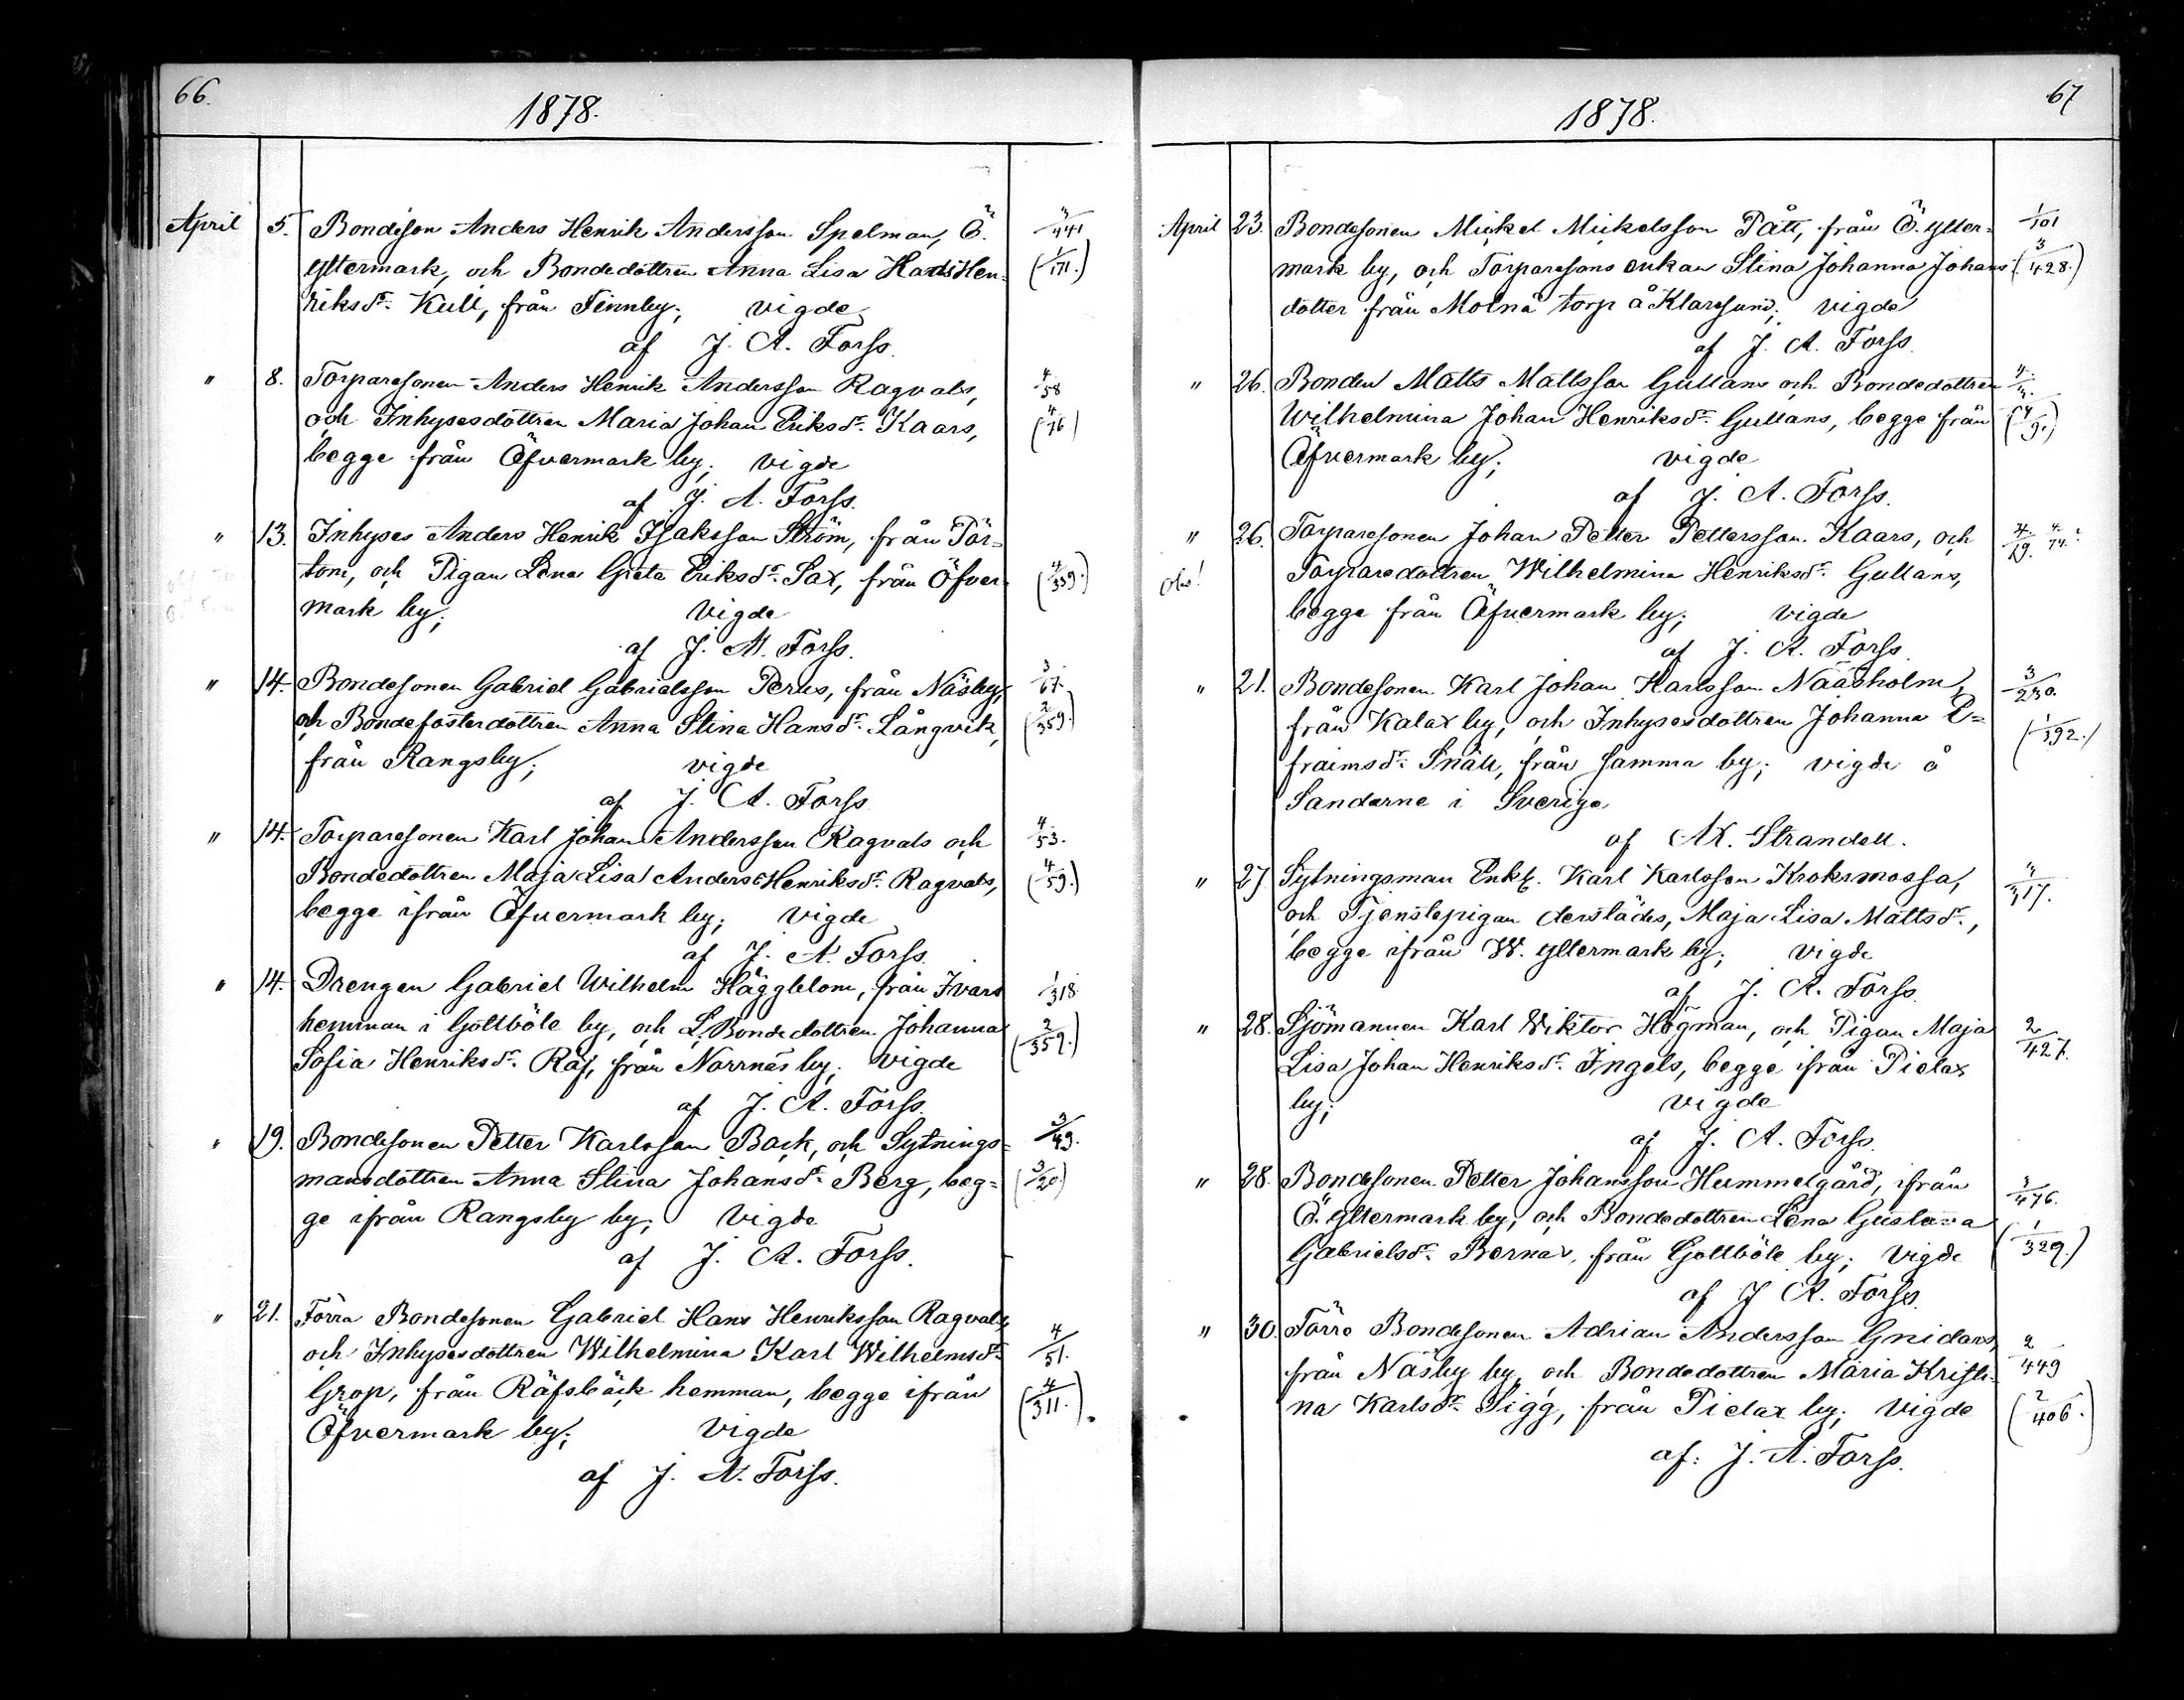 66.
1878.
April 5. Bondeson Anders Henrik Andersson Spelman, Ö. 3/441
Yttermark, och Bondedottren Anna Lisa Hans Hen= (1/171.)
riksdr. Kull, från Finnby; vigde
af J. A. Forss.
" 8. Torparesonen Anders Henrik Andersson Ragvals, 4/58
och Inhysesdottren Maria Johan Eriksdr. Kaars, (4/76)
begge från Öfvermark by; vigde
af J. A. Forss.
" 13. Inhyses Anders Henrik Isaksson Ström, från Pör=
tom, och Pigan Lena Greta Eriksdr. Sax, från Öfver= (4/339.)
mark by; vigde
af J. A. Forss.
" 14. Bondesonen Gabriel Gabrielsson Perus, från Näsby, 3/67.
och Bondefosterdottren Anna Stina Hansdr. Långvik, (2/359)
från Rangsby; vigde
af J. A. Forss.
" 14. Torparesonen Karl Johan Andersson Ragvals och 4/53.
Bondedottren Maja Lisa Anders Henriksdr. Ragvals, (4/59.)
begge ifrån Öfvermark by; vigde
af J. A. Forss.
" 14. Drengen Gabriel Wilhelm Häggblom, från Ivars 1/318
hemman i Gottböle by, och Bondedottren Johanna
Sofia Henriksdr. Räf, från Norrnäs by; vigde (2/359.)
af J. A. Forss.
" 19. Bondesonen Petter Karlsson Back, och Sytnings= 3/49.
mansdottren Anna Stina Johansdr. Berg, beg= (3/20)
ge ifrån Rangsby by; vigde
af J. A. Forss.
" 21. Förra Bondesonen Gabriel Hans Henriksson Ragvals,
och Inhysesdottren Wilhelmina Karl Wilhelmsdr. 4/51.
Grop, från Räfsbäck hemman, begge ifrån (4/311.)
Öfvermark by; vigde
af J. A. Forss.
67
1878.
April 23. Bondesonen Mickel Mickelsson Pått, från Ö. Ytter= 1/101
mark by, och Torparesons enkan Stina Johanna Johans= (3/428.)
dotter från Molnå torp å Klarsund; vigde
af J. A. Forss.
" 26. Bonden Matts Mattsson Gullans och Bondedottren
Wilhelmina Johan Henriksdr. Gullans, begge från (4/9.)
Öfvermark by; vigde
af J. A. Forss.
" 26. Torparesonen Johan Petter Pettersson Kaars, och 4/19. 4/74.
Obs! Torparedottren Wilhelmina Henriksdr. Gullans,
begge från Öfvermark by; vigde
af J. A. Forss.
" 21. Bondesonen Karl Johan Karlsson Nääsholm, 3/230.
från Kalax by, och Inhysesdottren Johanna E= (1/392.)
fraimsdr. Snäll, från samma by; vigde å
Sandarne i Sverige
af Ax. Strandell.
" 27 Sytningsman Enkl. Karl Karlsson Kroksmossa, 3/317.
och Tjenstepigan derstädes, Maja Lisa Mattsdr.,
begge ifrån W. Yttermark by; vigde
af J. A. Forss.
" 28. Sjömannen Karl Wiktor Högman, och Pigan Maja 2/427.
Lisa Johan Henriksdr. Ingels, begge ifrån Pielax
by; vigde
af J. A. Forss.
" 28. Bondesonen Petter Johansson Hummelgård, ifrån 3/476.
Ö. Yttermark by, och Bondedottren Lena Gustava
Gabrielsdr. Bernas, från Gottböle by; vigde (1/329.)
af J A. Forss.
" 30. Förre Bondesonen Adrian Andersson Gnidars,
från Näsby by, och Bondedottren Maria Kristi= 2/449
na Karlsdr. Sigg, från Pielax by; vigde (2/406.)
af: J. A. Forss.